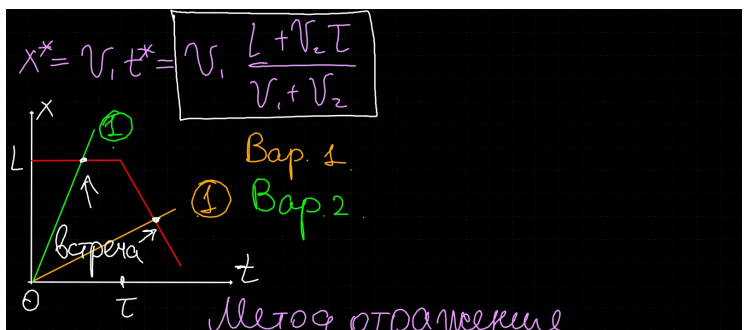 x* = V₁ t* = V₁ (L + V₂ τ) / (V₁ + V₂)
x
①
L
Вар. 1.
Вар. 2.
①
встреча
0
τ
t
Метод отражение